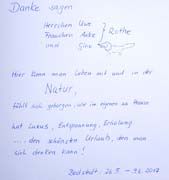 Danke sagen
Herrchen Uwe
Frauchen Anke
und Gina
Rothe
Hier kann man leben mit und in der
Natur,
fühlt sich geborgen wie im eigenen zu Hause
hat Luxus, Entspannung, Erholung
.... den schönsten Urlaub, den man
sich denken kann!